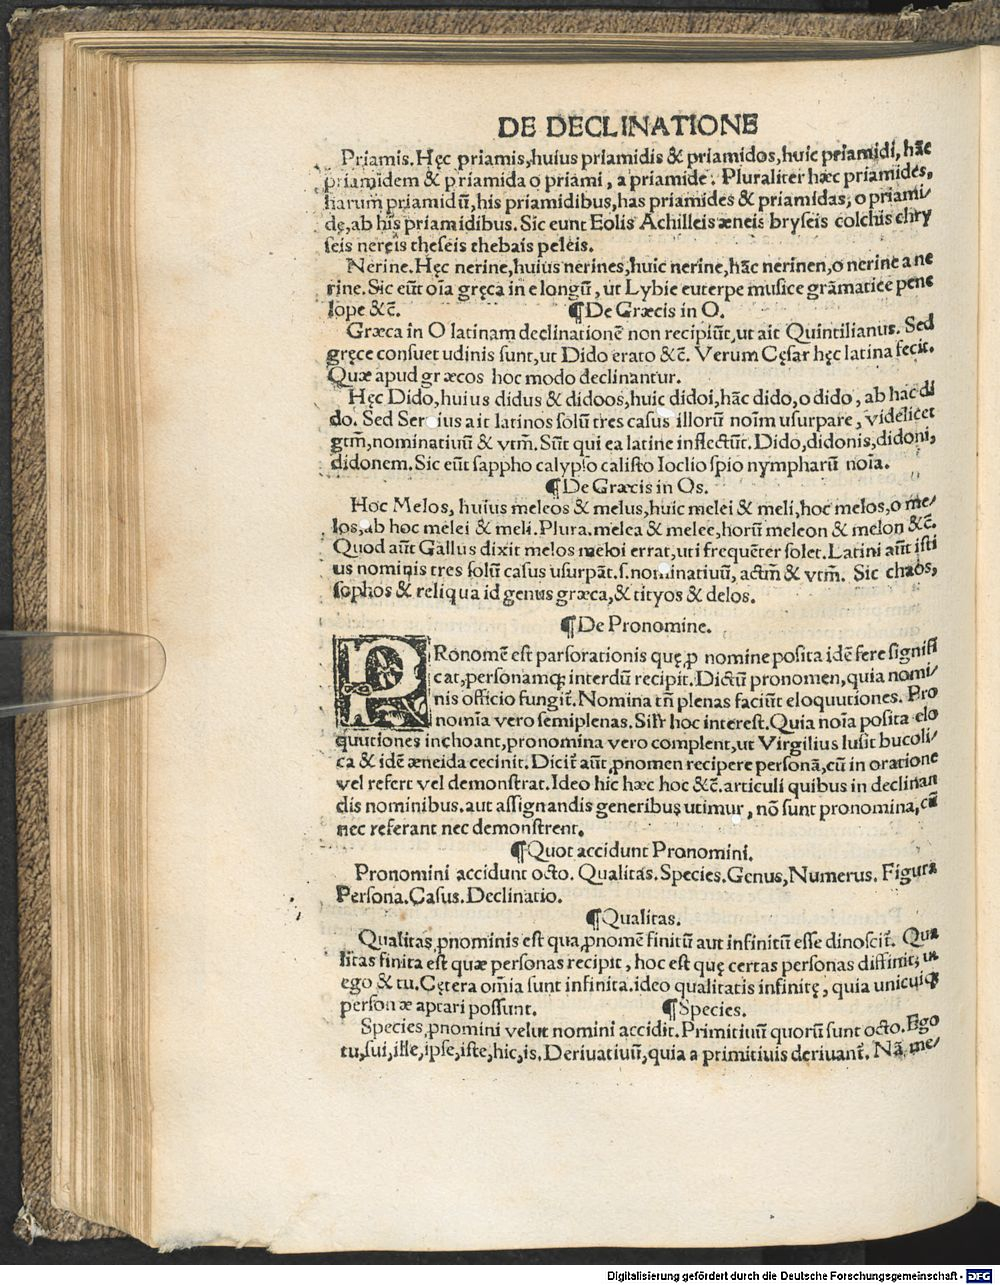 DE DECLINATIONE
Priamis. Hęc priamis, huius priamidis & priamidos, huic priamidi, hãc
priamidem & priamida o priami, a priamide. Pluraliter hæc priamides,
harum priamidũ, his priamidibus, has priamides & priamidas, o priami/
dę, ab his priamidibus. Sic eunt Eolis Achilleis æneis bryseis colchis chry
seis nereis theseis thebais peleis.
Nerine. Hęc nerine, huius nerines, huic nerine, hãc nerinen, o nerine a ne
rine. Sic eũt oĩa gręca in e longũ, ut Lybie euterpe musice grãmatice pene
lope &c̃. ¶De Græcis in O.
Græca in O latinam declinationẽ non recipiũt, ut ait Quintilianus. Sed
gręce consuet udinis sunt, ut Dido erato &c̃. Verum Cęsar hęc latina fecit.
Quæ apud græcos hoc modo declinantur.
Hęc Dido, huius didus & didoos, huic didoi, hãc dido, o dido, ab hac di
do. Sed Ser ius ait latinos solũ tres casus illorũ noĩm usurpare, videlicet
gtm̃, nominatiuũ & vtm̃. Sũt qui ea latine inflectũt. Dido, didonis, didoni,
didonem. Sic eũt sappho calypso calisto Ioclio spio nympharũ noĩa.
¶De Græcis in Os.
Hoc Melos, huius meleos & melus, huic melei & meli, hoc melos, o me/
los, ab hoc melei & meli. Plura. melea & melee, horũ meleon & melon &c̃.
Quod aũt Gallus dixit melos meloi errat, uti frequẽter solet. Latini aũt isti
us nominis tres solũ casus usurpãt. s. nominatiuũ, actm̃ & vtm̃. Sic chaos,
sophos & reliqua id genus græca, & tityos & delos.
¶De Pronomine.
PRonomẽ est pars orationis quę, ꝓ nomine posita idẽ fere signifi
cat, personamqꝫ interdũ recipit. Dictũ pronomen, quia nomi/
nis officio fungit̃. Nomina tñ plenas faciũt eloquutiones. Pro
nomĩa vero semiplenas. Silr̃ hoc interest. Quia noĩa posita elo
quutiones inchoant, pronomina vero complent, ut Virgilius lusit bucoli/
ca & idẽ æneida cecinit. Dicit̃ aũt, ꝓnomen recipere personã, cũ in oratione
vel refert vel demonstrat. Ideo hic hæc hoc &c̃. articuli quibus in declinan
dis nominibus. aut assignandis generibus utimur, nõ sunt pronomina, cũ
nec referant nec demonstrent.
¶Quot accidunt Pronomini.
Pronomini accidunt octo. Qualitas. Species. Genus, Numerus. Figura
Persona. Casus. Declinatio.
¶Qualitas.
Qualitas ꝓnominis est qua, ꝓnomẽ finitũ aut infinitũ esse dinoscit̃. Qua
litas finita est quæ personas recipit, hoc est quę certas personas diffinit, ut
ego & tu. Cętera om̃ia sunt infinita. ideo qualitatis infinitę, quia unicuiqꝫ
personæ aptari possunt. ¶Species.
Species, ꝓnomini velut nomini accidit. Primitiuũ quorũ sunt octo. Ego
tu, sui, ille, ipse, iste, hic, is. Deriuatiuũ, quia a primitiuis deriuant̃. Nã me/
Digitalisierung gefördert durch die Deutsche Forschungsgemeinschaft - DFG